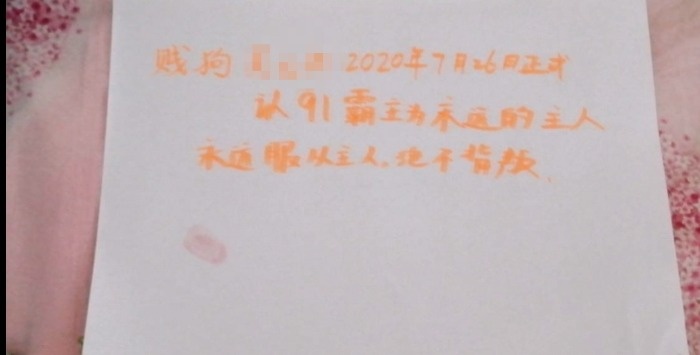 贱狗 2020年7月26日正式
认91霸主为永远的主人
永远服从主人,绝不背叛.